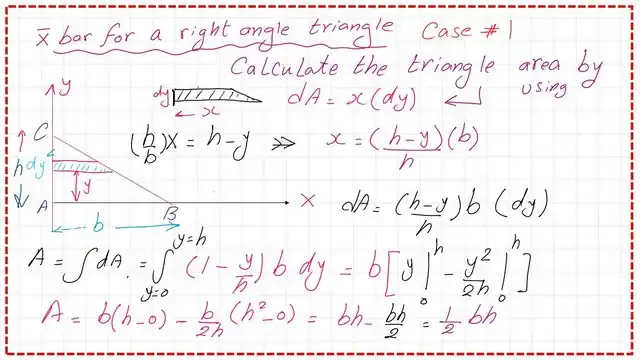 x̄ bar for a right angle triangle Case #1
Calculate the triangle area by using
y
dy
x
dA = x(dy)
C
(h/b)x = h-y >> x = (h-y)/h (b)
h dy
y
A
B
x
b
dA = (h-y)/h b (dy)
A = ∫dA = ∫_{y=0}^{y=h} (1 - y/h) b dy = b[y|_0^h - y²/2h|_0^h]
A = b(h-0) - b/2h (h²-0) = bh - bh/2 = 1/2 bh